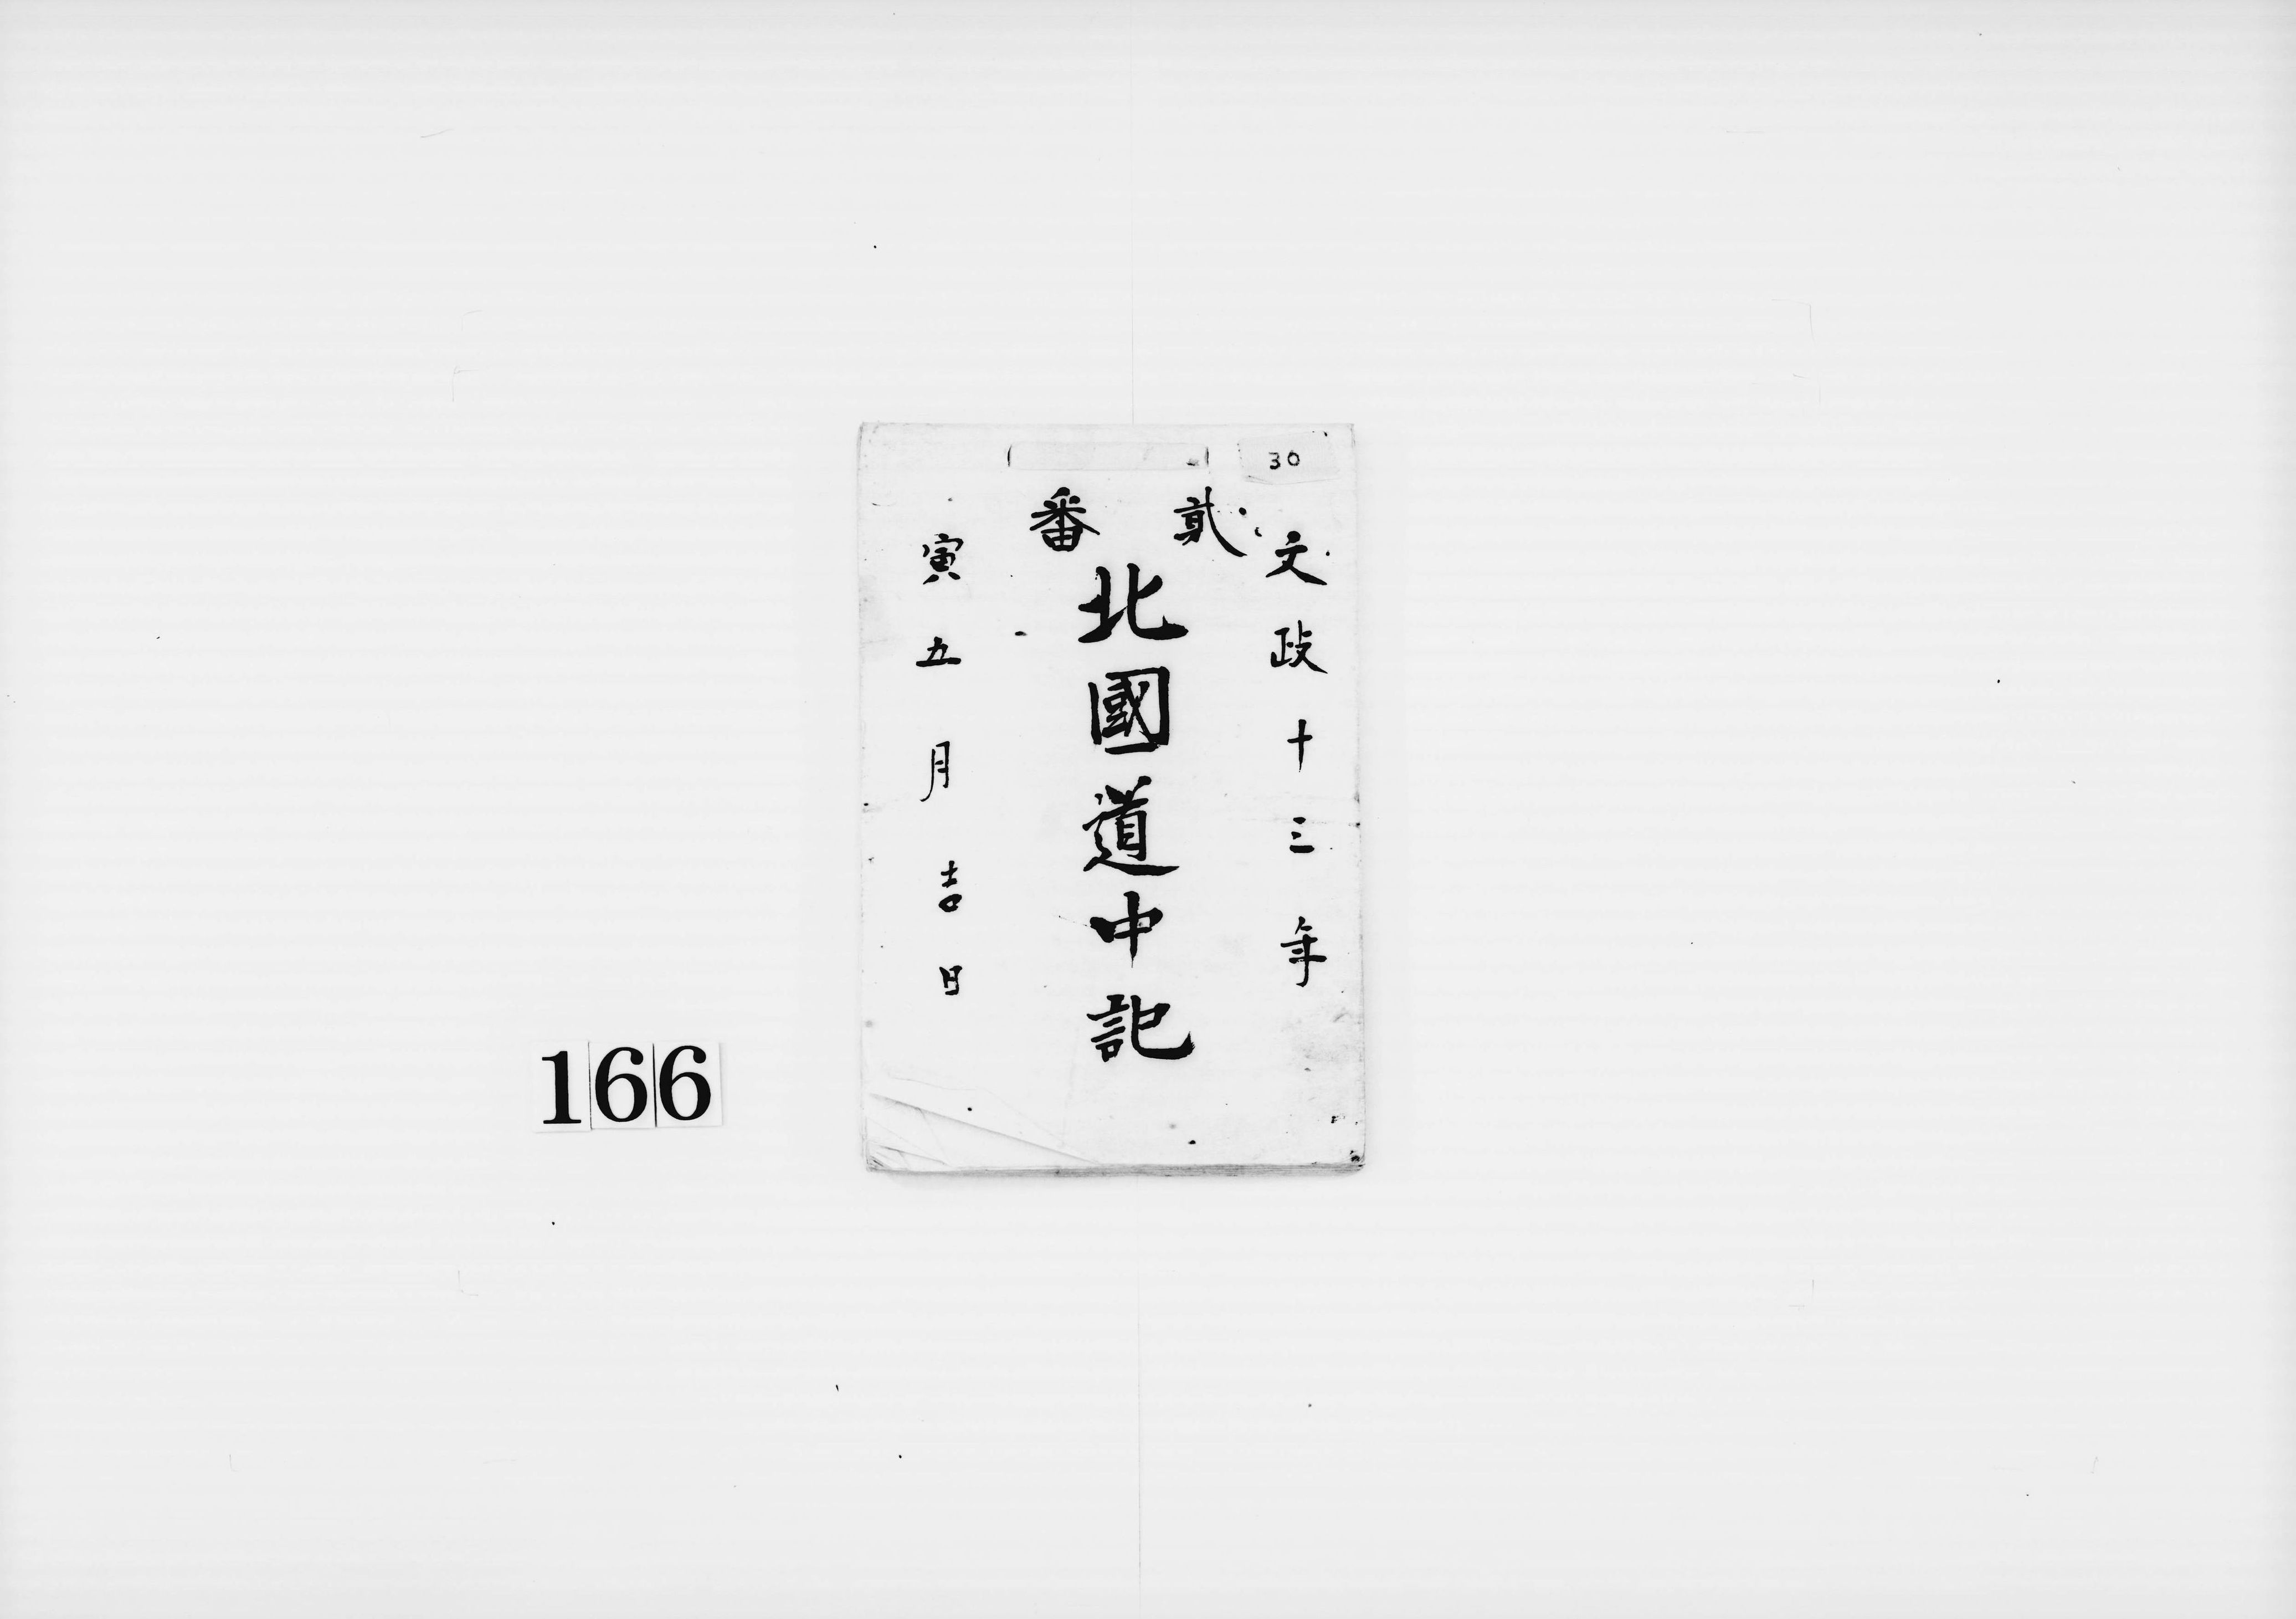 30
文政十三年
貳番
北國道中記
寅五月吉日
166